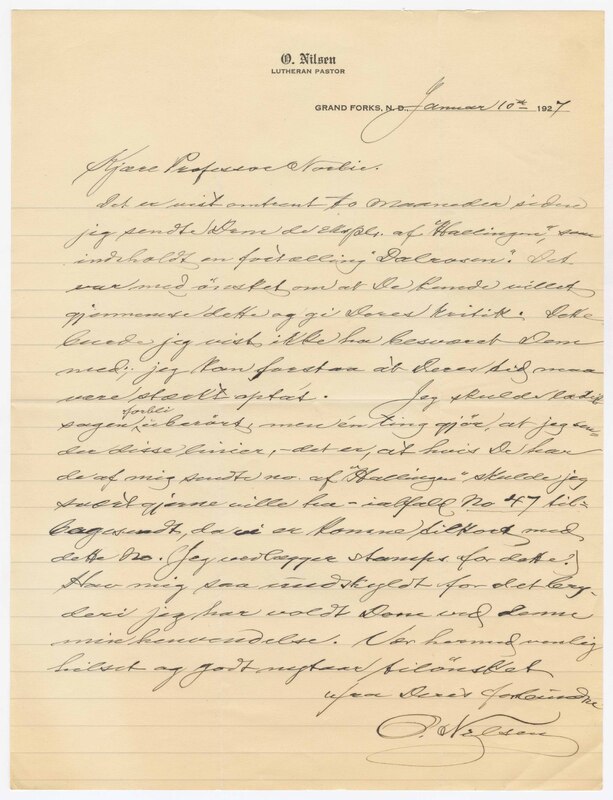 O. Nilsen
LUTHERAN PASTOR
GRAND FORKS, N. D., Januar 10th 1927
Kjære Professor Norlie.
Det er vist omtrent to maaneder siden
jeg sendte Dem de expls. af "Hallingen", som
indeholdt en fortælling "Dalrosen". Det
var med ønsket om at De kunde villet
gjennemse dette og gi Deres kritik. Dette
burde jeg vist ikke ha besværet Dem
med; jeg kan forstaa at Deres tid maa
være stærkt optat. Jeg skulde ladet
sagen forbli uberørt, men én ting gjør, at jeg sen-
der disse linier, - det er, at hvis De har
de af mig sendte no. af "Hallingen" skulde jeg
svært gjerne ville ha - ialfald No 47 til-
bagesendt, da vi er komne tilkort med
dette No. (Jeg vedlægger stamps for dette.)
Hav mig saa undskyldt for det bry-
deri jeg har voldt Dem ved denne
min henvendelse. Vær hermed venlig
hilset og godt nytaar tilønsket
fra Deres forbundne
O. Nilsen